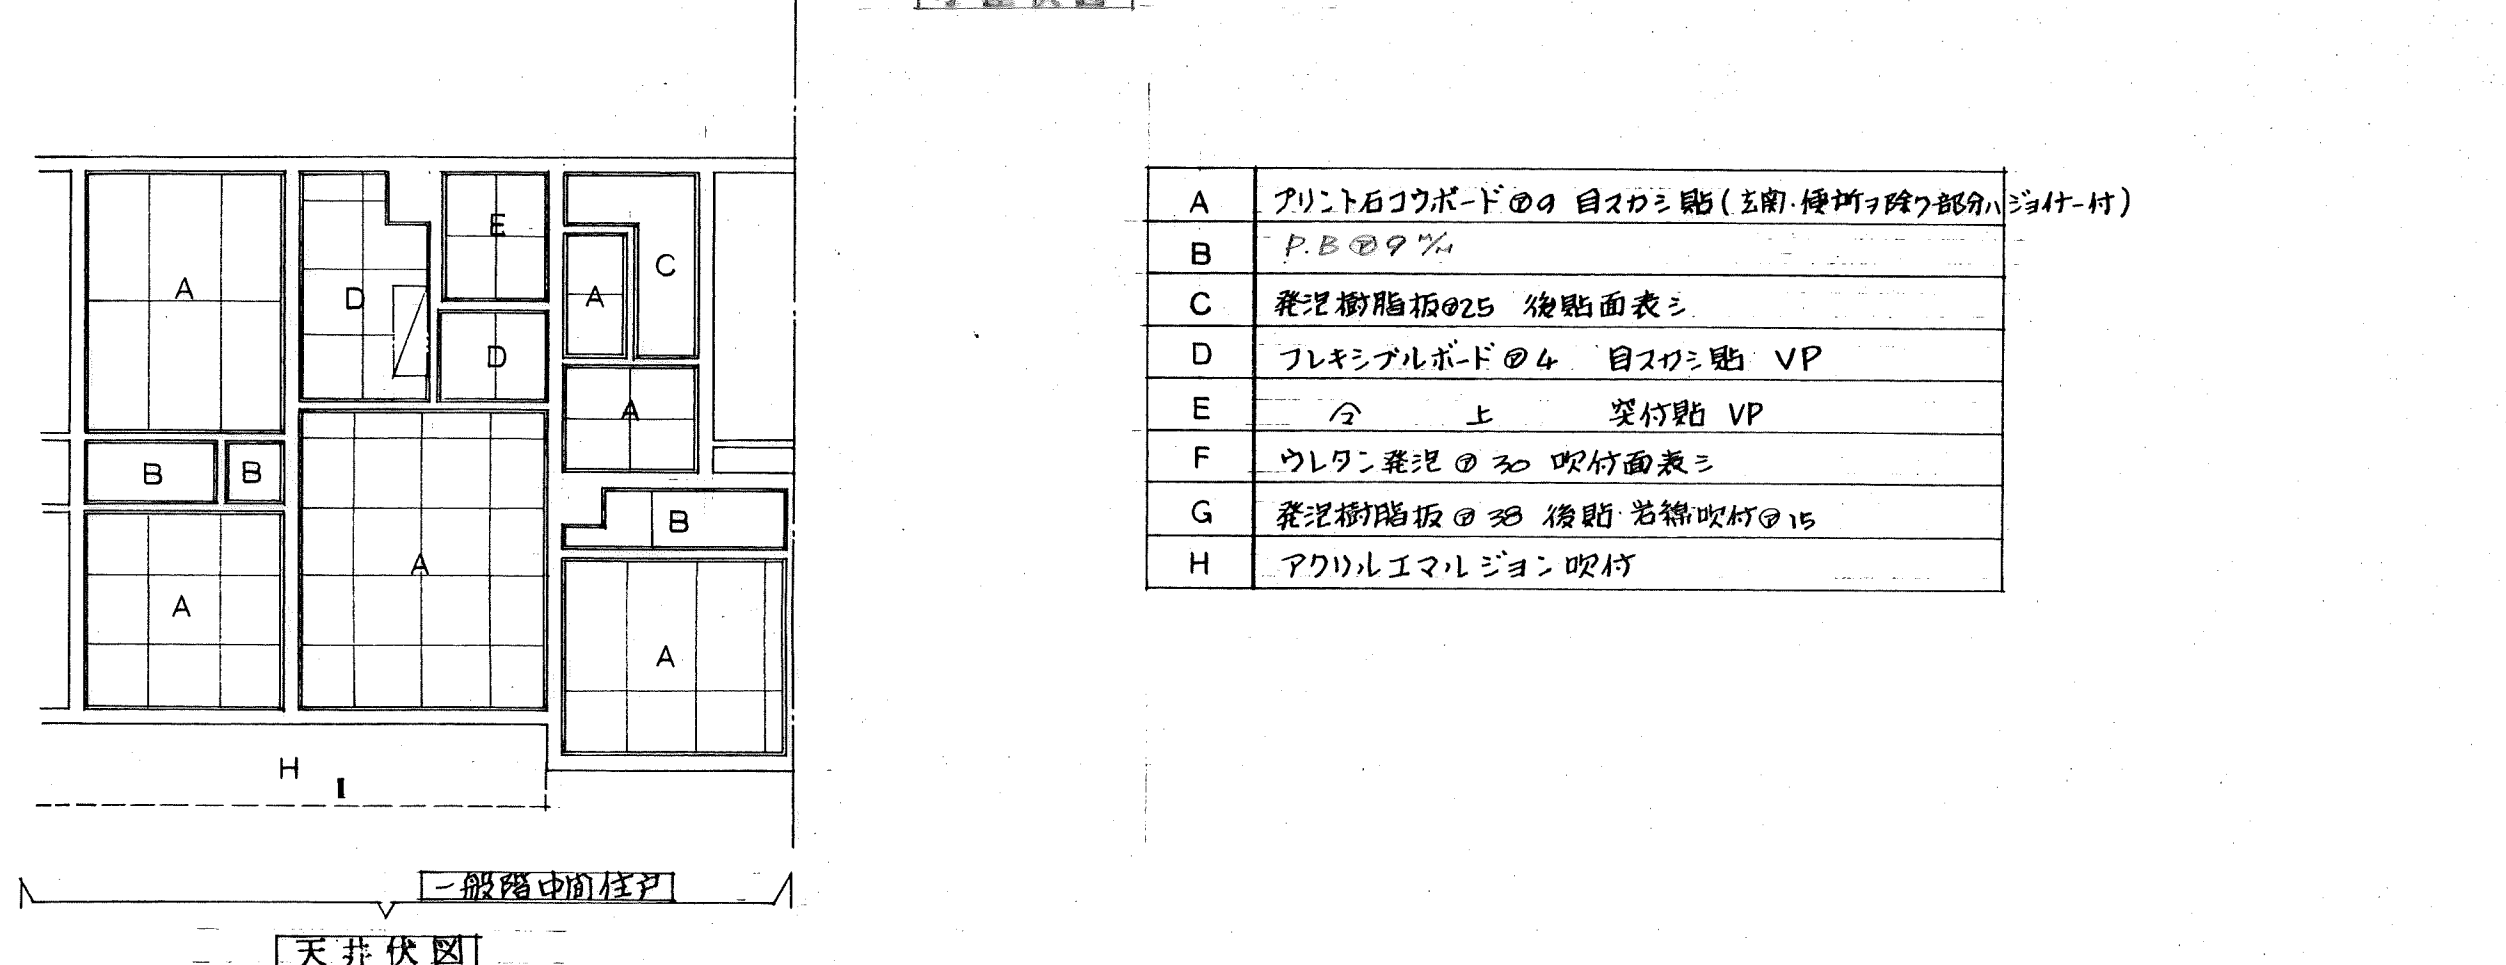 A
E
D
C
A
D
A
B
B
B
A
A
A
H
I
一般階中間住戸
天井伏図
A プリント石コウボードⓉ9 目スカシ貼(玄関・便所ヲ除ク部分ハジョイナー付)
B P.BⓉ9 m/m
C 発泡樹脂板Ⓣ25 後貼面表シ
D フレキシブルボードⓉ4 目スカシ貼 VP
E 仝 上 突付貼 VP
F ウレタン発泡Ⓣ30 吹付面表シ
G 発泡樹脂板Ⓣ38 後貼・岩綿吹付Ⓣ15
H アクリルエマルジョン吹付